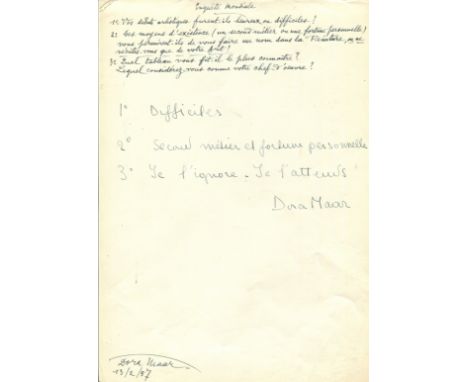 Enquête Mondiale
1: Vos débuts artistiques furent-ils heureux ou difficiles?
2: Les moyens d'existence (un second métier ou une fortune personnelle)
vous permirent-ils de vous faire un nom dans la Peinture, ou ne
vécûtes vous que de votre art?
3: Quel tableau vous fit-il le plus connaître?
Lequel considérez-vous comme votre chef-d'œuvre?
1° Difficiles
2° Second métier et fortune personnelle
3° Je l'ignore - Je l'attends
Dora Maar
Dora Maar
13/2/57